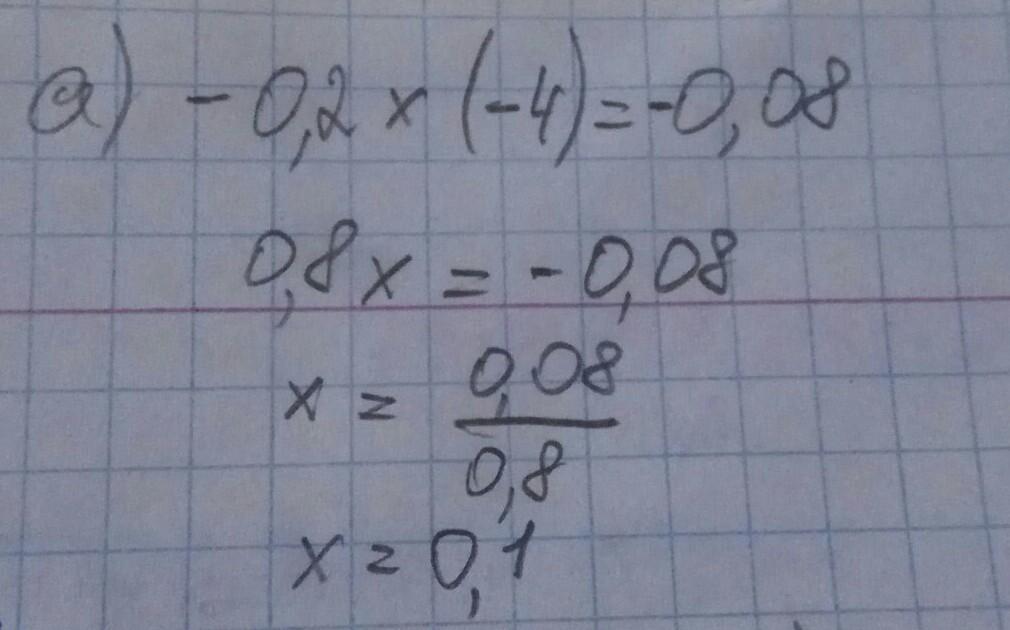 a) -0,2x(-4)=-0,08
0,8x=-0,08
x=0,08/0,8
x=0,1